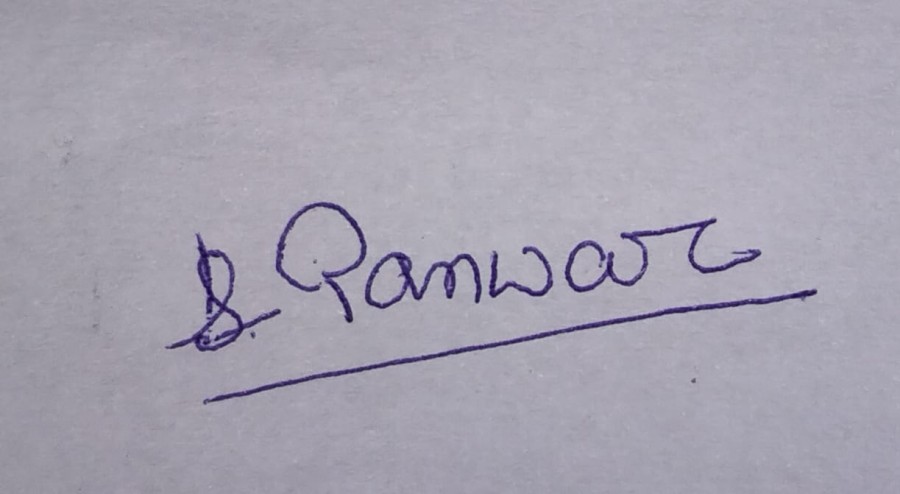 S. Panwar